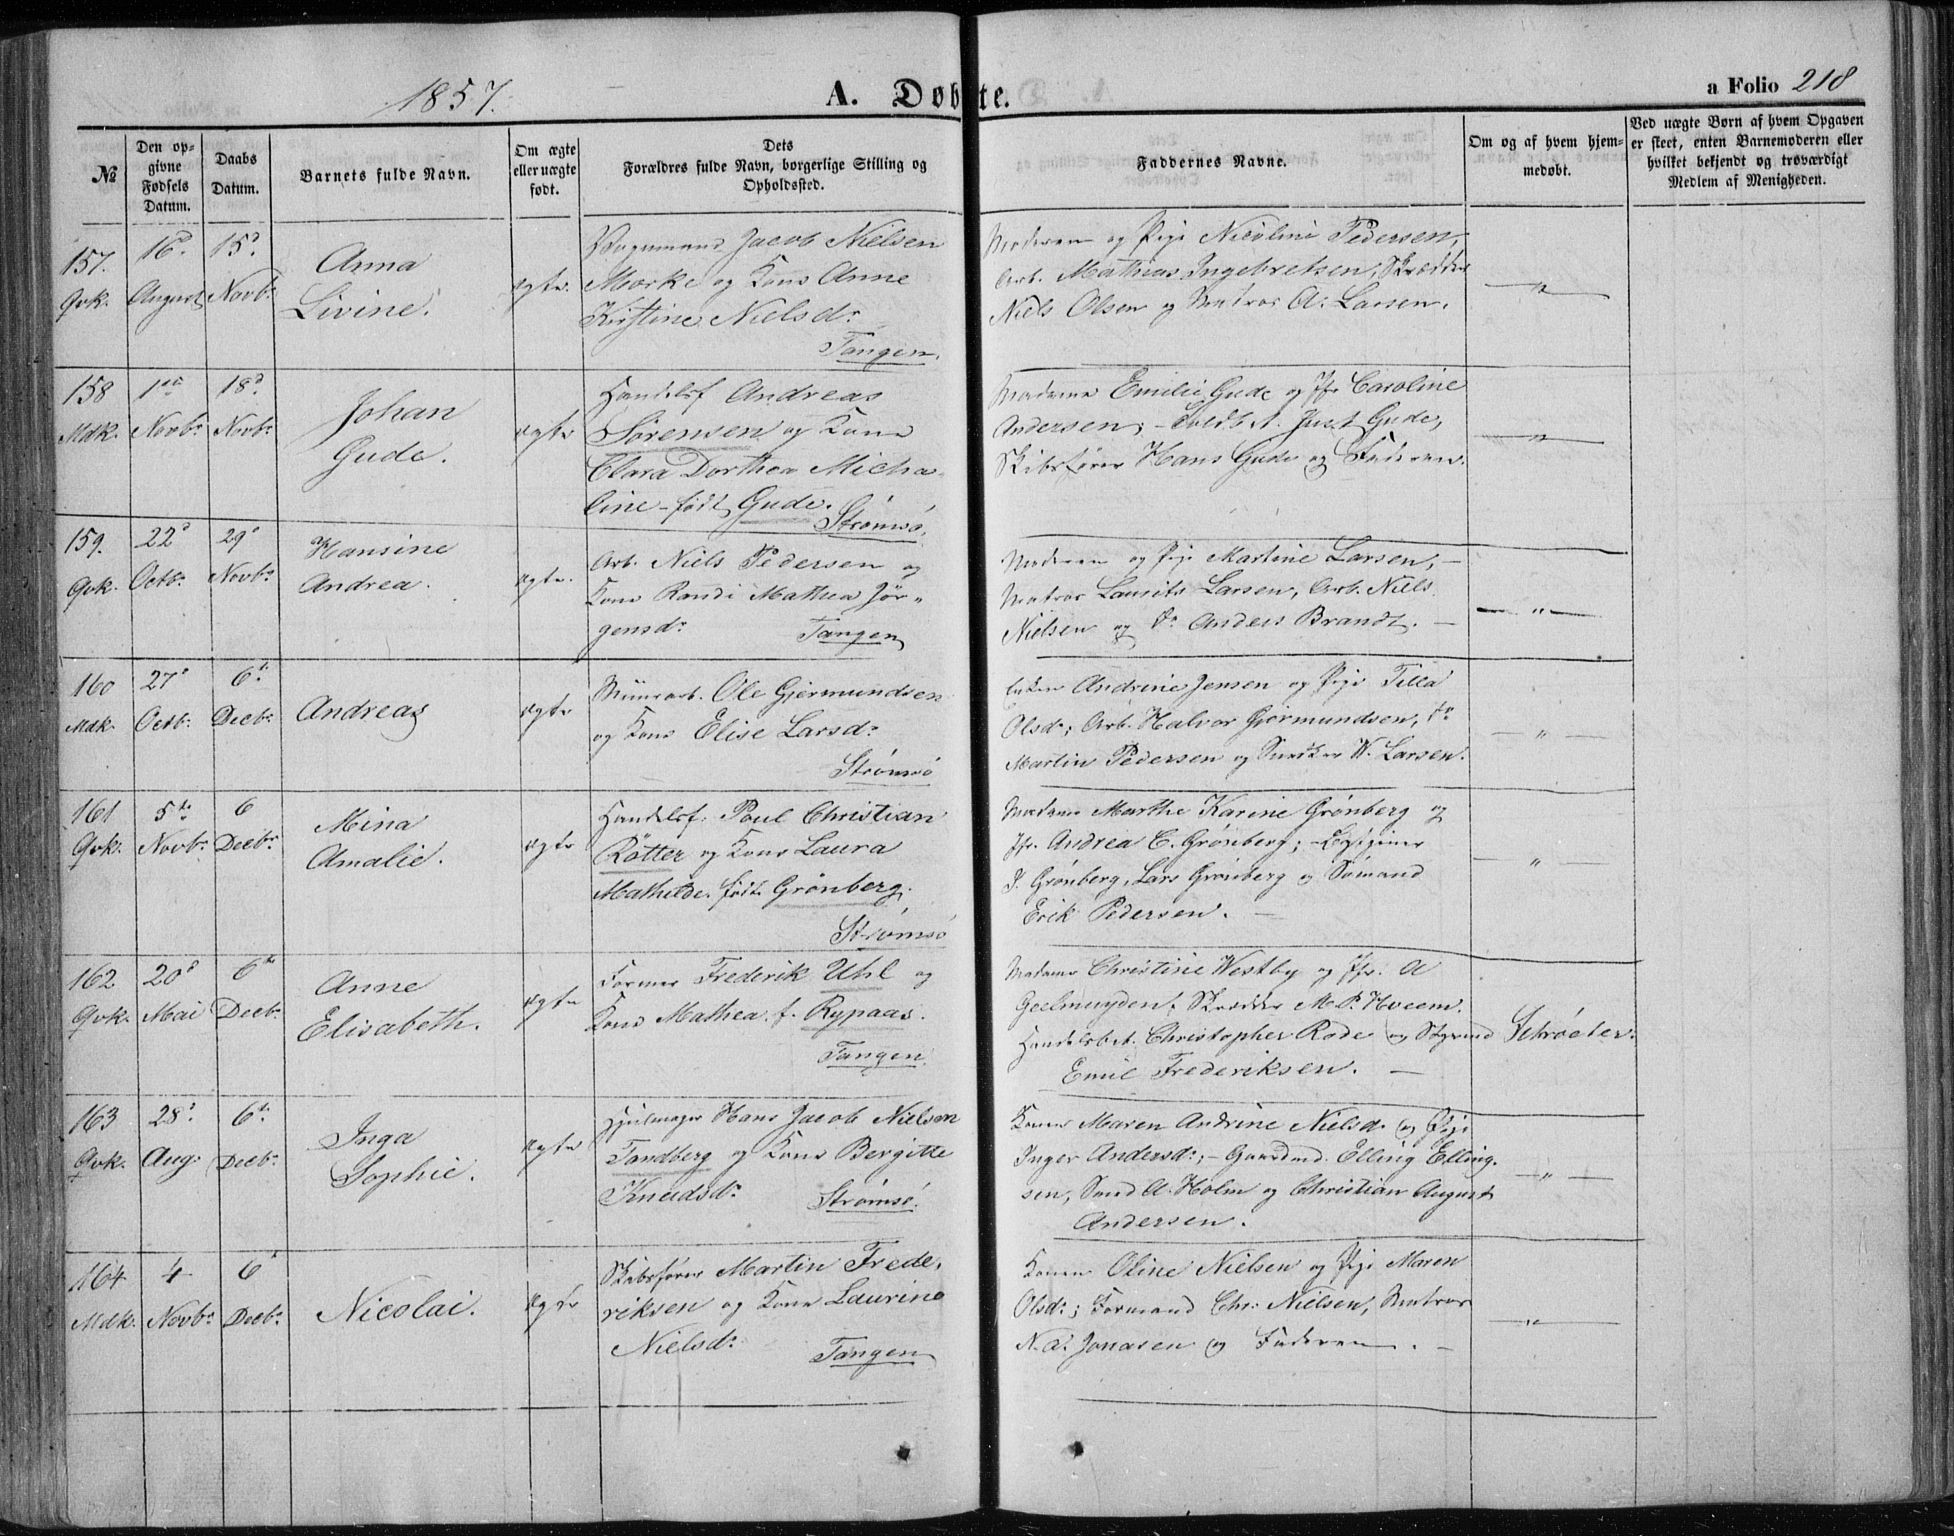 1857.
A. Døbte.
a Folio 218
№
Den opgivne Fødsels Datum.
Daabs Datum.
Barnets fulde Navn.
Om ægte eller uægte født.
Dets Forældres fulde Navn, borgerlige Stilling og Opholdssted.
Faddernes Navne.
Om og af hvem hjemmedøbt.
Ved uægte Børn af hvem Opgaven er skeet, enten Barnemoderen eller hvilket bekjendt og troværdigt Medlem af Menigheden.
157. Qvk.
16d August
15d Novbr
Anna
Livine.
ægte.
Vognmand Jacob Nielsen
Mørke og Kone Anne
Kirstine Nielsdr
Tangen.
Moderen og Pige Nicoline Pedersen,
Arb. Mathias Ingebretsen, Skrædder
Niels Olsen og Matros A. Larsen.
"
158 Mdk.
1ste Novbr
18d Novbr
Johan
Gude.
ægte
Handelsf Andreas
Sørensen og Kone
Clara Dorthea Micha-
line - født Gude.
Strømsø.
Madame Emilie Gude og Jfr Caroline
Andersen; - Just Gude,
Skibsfører Hans Gude og Faderen.
"
159. Qvk.
22d Octbr
29d Novbr
Hansine
Andrea.
ægte.
Arb. Niels Pedersen og
Kone Randi Mathea Jør-
gensdr
Tangen
Moderen og Pige Martine Larsen, -
Matros Laurits Larsen, Arb. Niels
Nielsen og do Anders Brandt. -
"
160 Mdk.
27d Octbr
6te Decbr
Andreas
ægte
Muurarb. Ole Gjermundsen
og Kone Elise Larsdr
Strømsø
Enken Andrine Jensen og Pige Tilla
Olsdr; Arb. Halvor Gjermundsen, do
Martin Pedersen og Snedker W. Larsen.
"
161 Qvk.
5te Novbr
6 Decbr
Mina
Amalie.
ægte
Handelsf. Poul Christian
Rötter og Kone Laura
Mathilde. født Grønberg.
Strømsø
Madame Marthe Karine Grønberg og
Jfr. Andrea C. Grønberg; -
J. Grønberg, Lars Grønberg og Sømand
Erik Pedersen. -
"
162 Qvk.
20d Mai
6te Decbr
Anne
Elisabeth.
ægte
Former Frederik Uhl og
Kone Mathea f. Rypaas.
Tangen
Madame Christine Westby og Jfr. A
Geelmuyden; Skrædder M. P. Hveem.
Handelsbet. Christopher Rode og Styrmd
Emil Frederiksen. -
Schrøeter.
163 Qvk.
28d Aug:
6te Decbr
Inga
Sophie.
ægte
Hjulmager Hans Jacob Nielsen
Tandberg og Kone Bergitte
Knudsdr
Strømsø.
Konen Maren Andrine Nielsdr og Pige
Inger Andersdr; - Gaardmd. Elling Elling-
sen, Smed A. Holm og Christian August
Andersen.
"
164 Mdk.
4 Novbr
6 Decbr
Nicolai.
ægte
Skibsfører Martin Frede-
riksen og Kone Laurine
Nielsdr
Tangen
Konen Oline Nielsen og Pige Maren
Olsdr; Formand Chr: Nielsen, Matros
N. A. Jonasen og Faderen. -
"